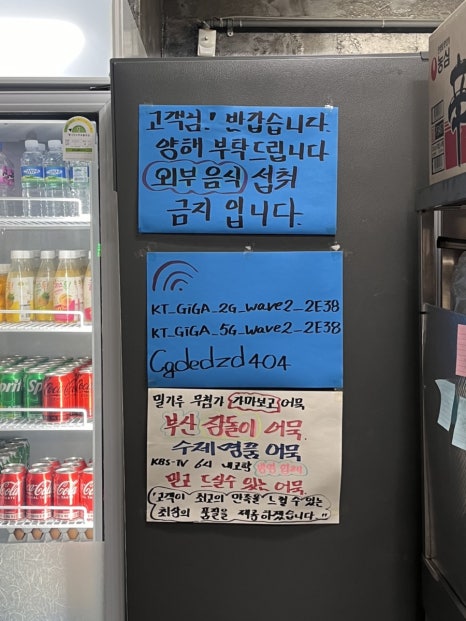 고객님! 반갑습니다.
양해 부탁드립니다
외부 음식 섭취
금지 입니다.
KT_GiGA_2G_wave2_2E38
KT_GiGA_5G_wave2_2E38
Cgdedzd404
밀가루 무첨가 가마보고 어묵
부산 깜돌이 어묵.
수제 명품 어묵
KBS-TV 6시 내고향
믿고 드실수 있는 어묵.
고객이 최고의 만족을 느낄 수 있는
최상의 품질을 제공하겠습니다."
농심
Sprite
Coca-Cola
Coca-Cola